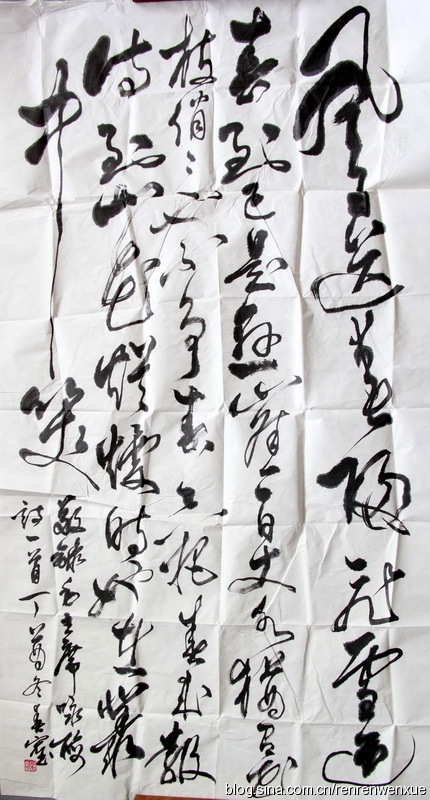 風雨送春歸飛雪迎
春到已是懸崖百丈冰猶有花
枝俏〻也不争春只把春来報
待到山花爛熳時她在叢
中笑
敬録毛主席咏梅
詩一首丁酉冬
blog.sina.com.cn/renrenwenxue